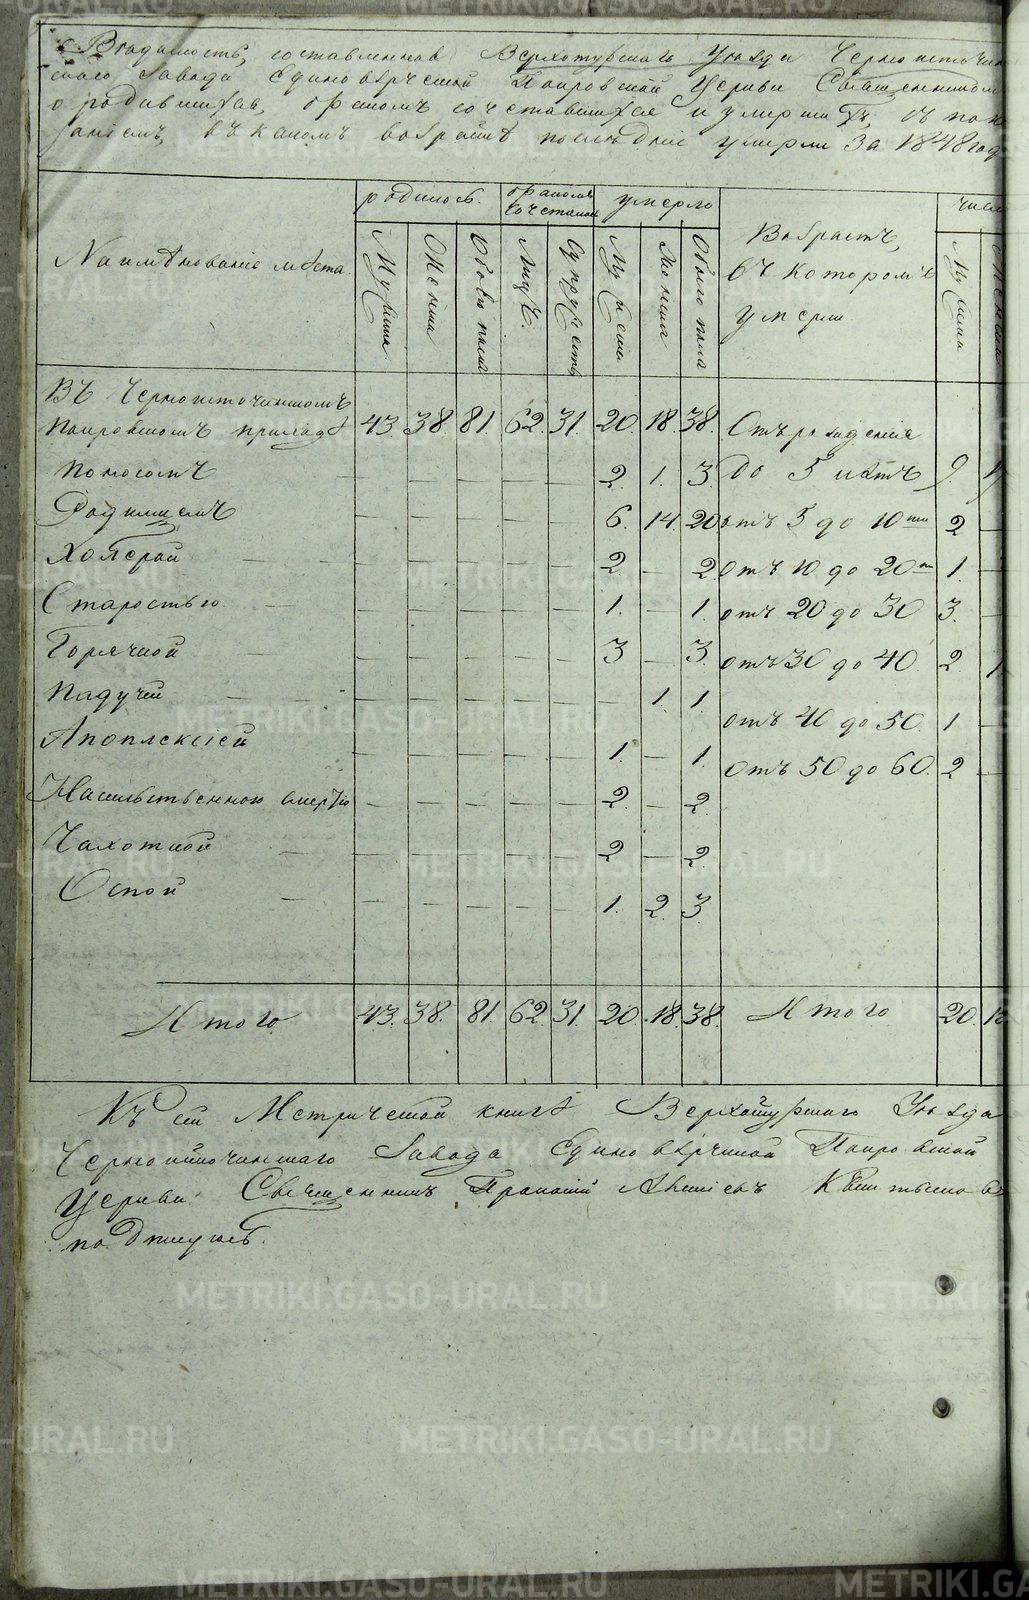 Вѣдомость, составленная Верхотурскаго Уѣзда Черноисточин
скаго Завода Единовѣрческой Покровской Церкви Священникомъ
о родившихся, бракомъ сочетавшихся и умершихъ, съ пока
заніемъ, въ какомъ возрастѣ послѣдніе умерли за 1848 год
Наименованіе мѣста
родилось.
бракомъ сочетались
умерло
Возрастъ, въ которомъ умерли
число
Мужеска
Женска
Обоего пола
Лицъ.
Супружествъ
Мужеска
Женска
Обоего пола
Мужеска
Женска
Въ Черноисточинскомъ
Покровскомъ приходѣ 43. 38 81. 62. 31. 20. 18. 38. Отъ рожденія
Поносомъ — — — — — 2. 1. 3. до 5 лѣтъ 9.
Родимцемъ — — — — — 6. 14. 20 отъ 5 до 10ти 2 —
Холерой — — — — — 2. — 2 отъ 10 до 20ти 1. —
Старостью — — — — — 1. — 1. отъ 20 до 30 3. —
Горячкой — — — — — 3 — 3. отъ 30 до 40. 2. 1.
Падучей — — — — — — 1. 1. отъ 40 до 50. 1 —
Апоплексіей — — — — — 1. — 1. отъ 50 до 60. 2 —
Насильственною смертію — — — — — 2. — 2.
Чахоткой — — — — — 2 — 2.
Оспой — — — — — 1. 2. 3.
Итого 43. 38. 81. 62 31. 20 18 38. Итого 20.
Къ сей Метрической книгѣ Верхотурскаго Уѣзда
Черноисточинскаго Завода Единовѣрческой Покровской
Церкви Священникъ
подпишусь.
METRIKI.GASO-URAL.RU